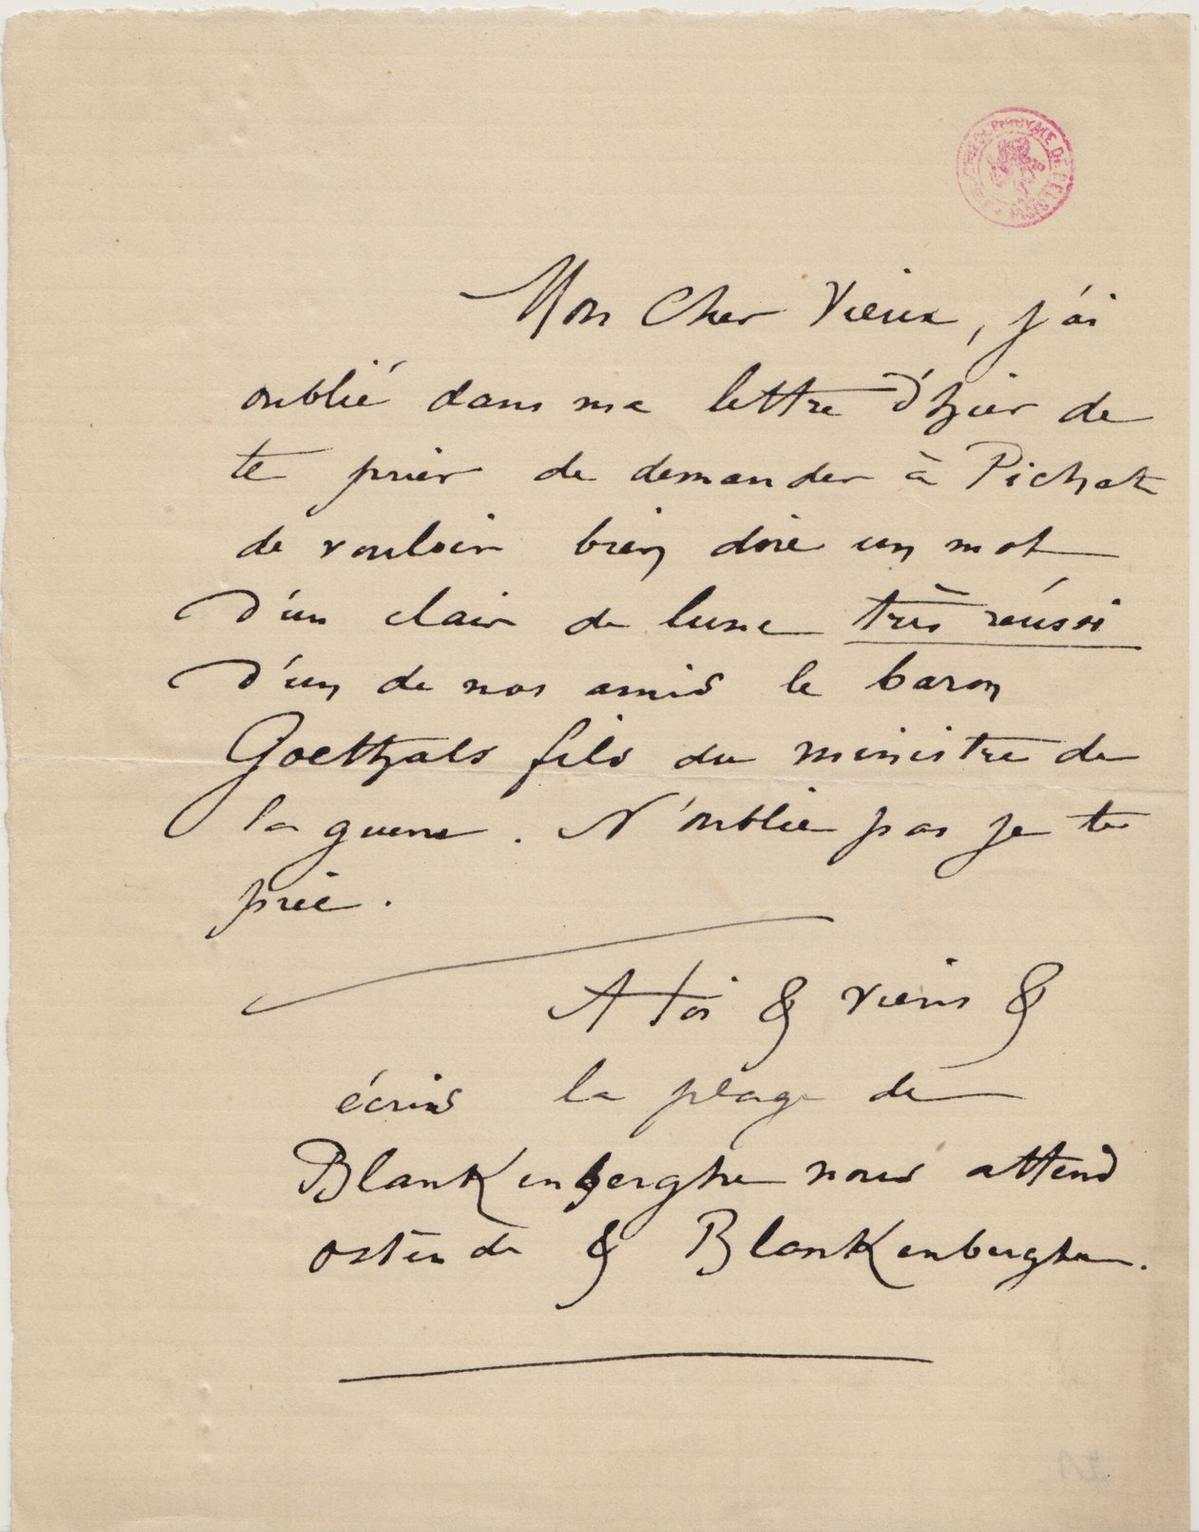 BIBLIOTHÈQUE ROYALE DE BELGIQUE
Mon Cher Vieux, j'ai
oublié dans ma lettre d'hier de
te prier de demander à Pichat
de vouloir bien dire un mot
d'un clair de lune très réussi
d'un de nos amis le baron
Goethals fils du ministre de
la guerre. N'oublie pas je te
prie.
A toi & viens &
écris la plage de
Blankenberghe nous attend
ostende & Blankenberghe.